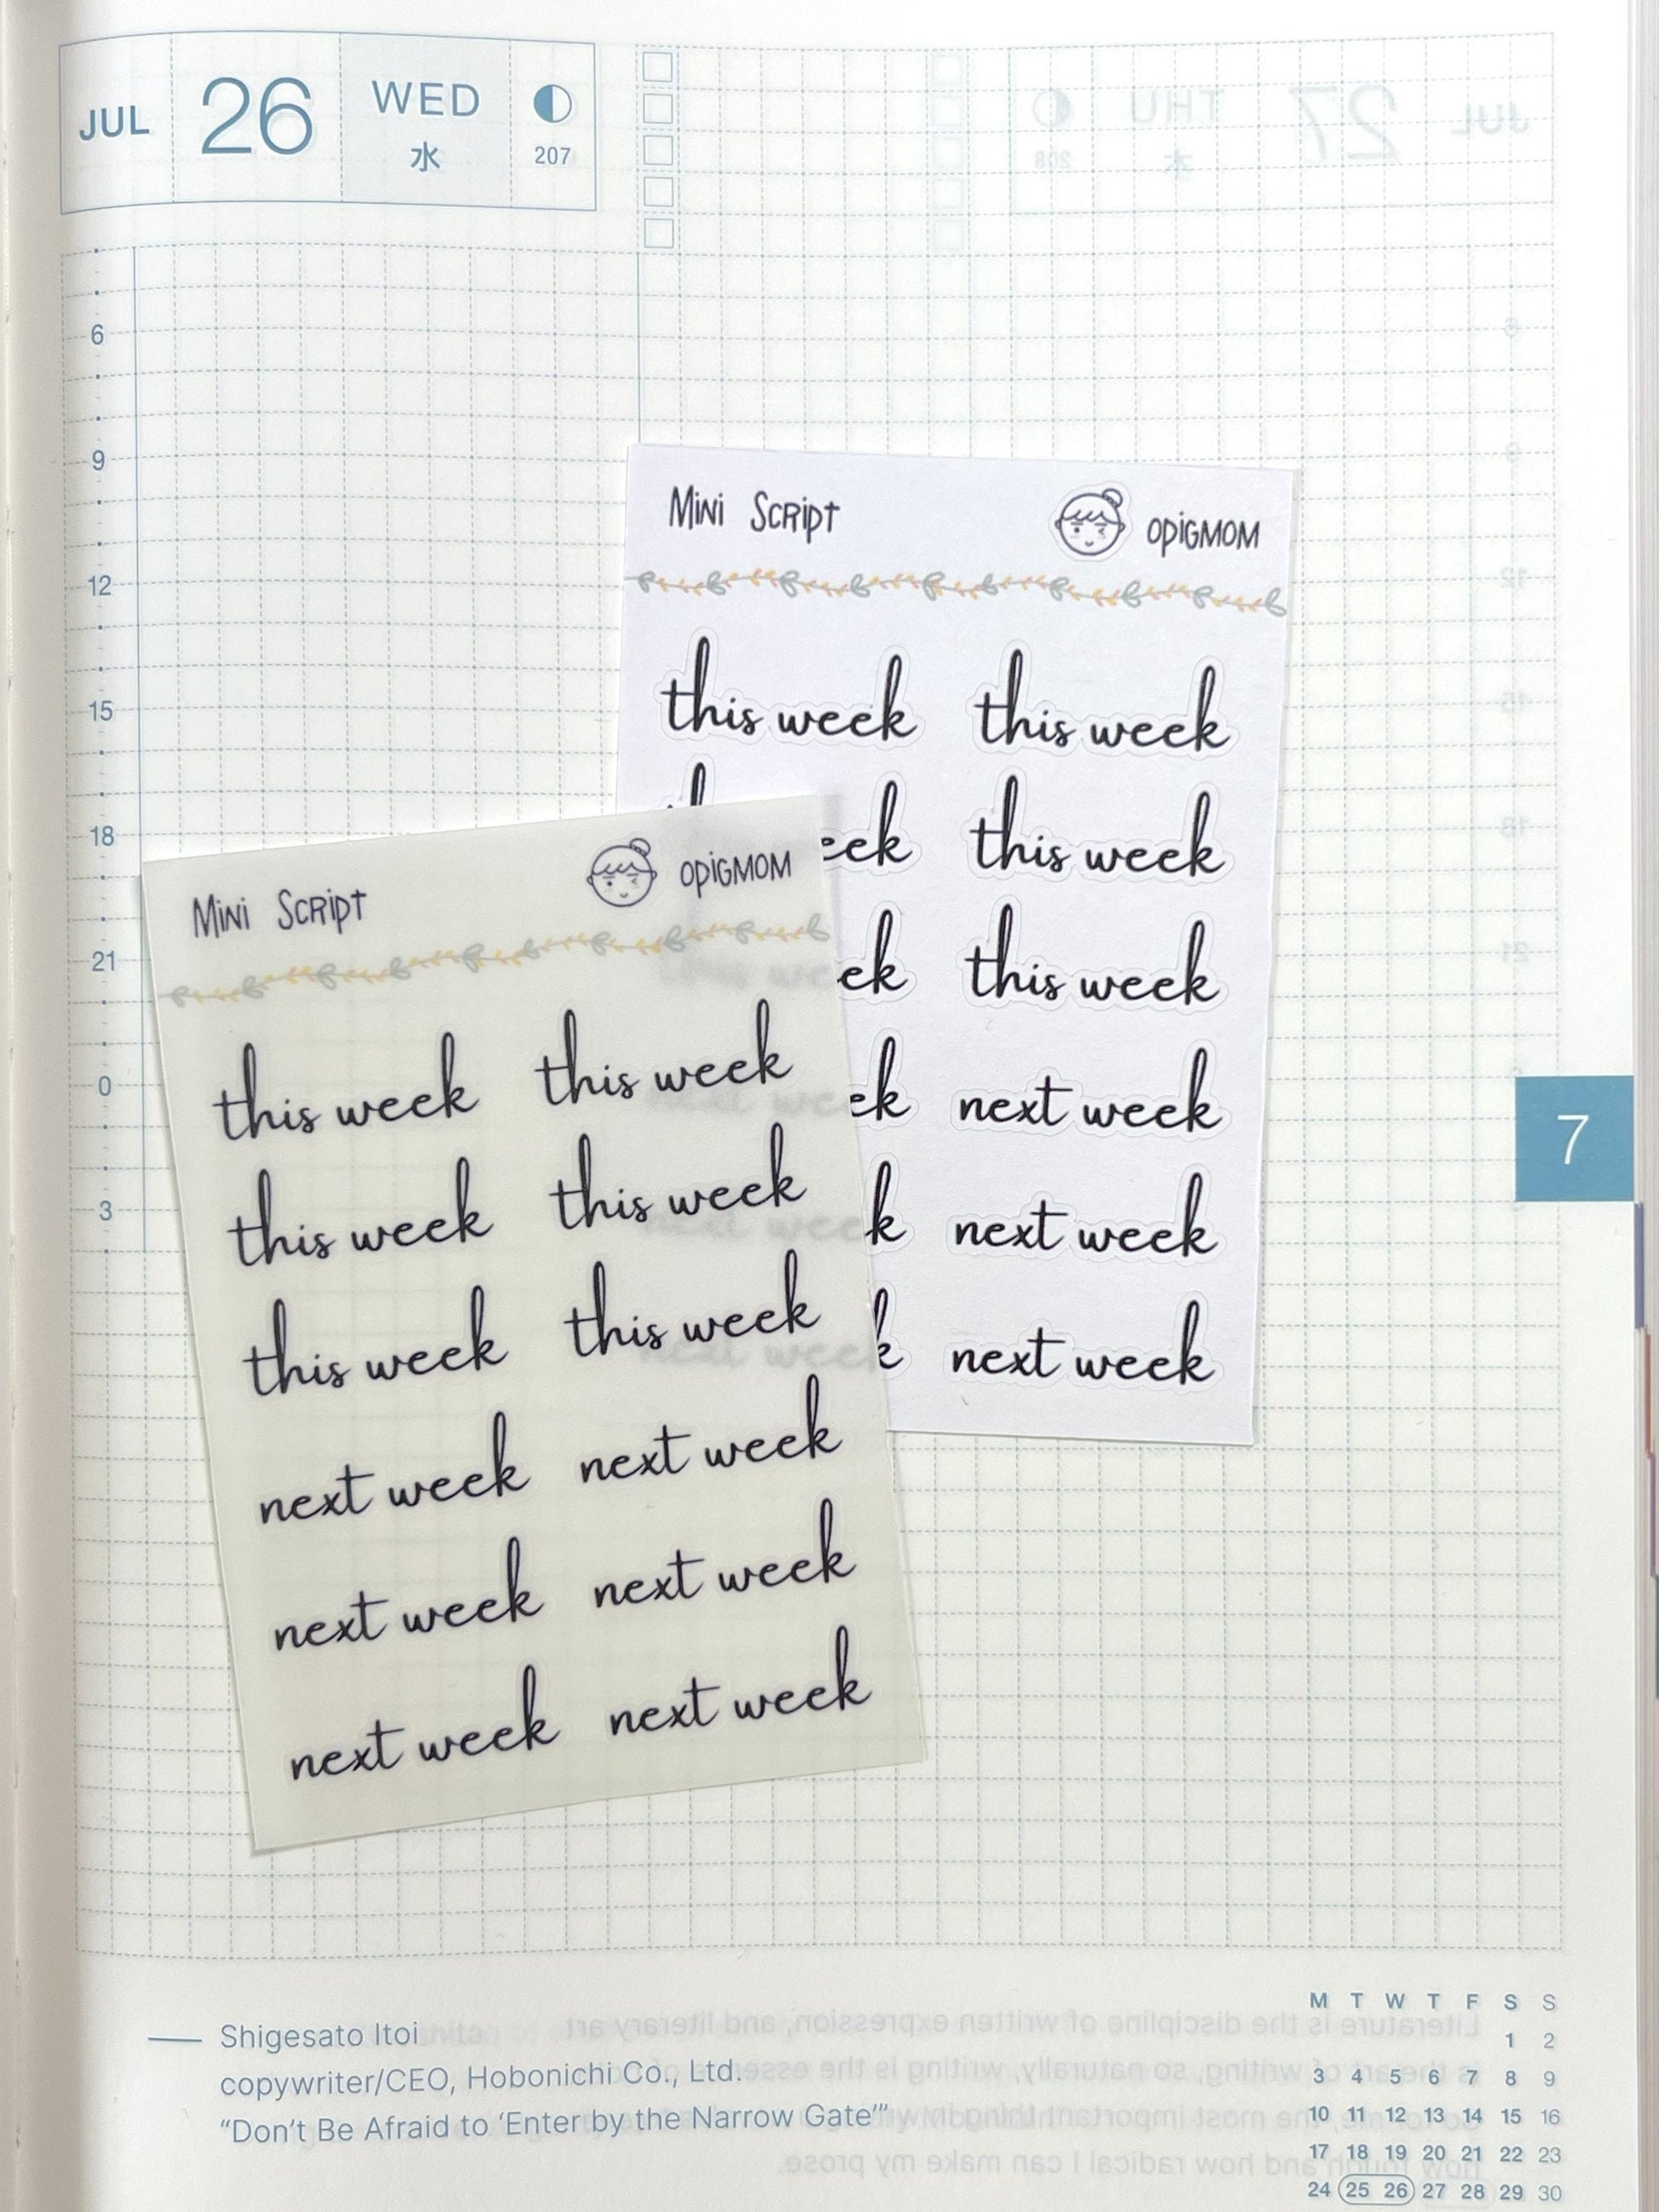 JUL 26 WED
水 207
6
9
12
15
18
21
0
3
Mini Script OPiGMOM
this week this week
eek this week
ek this week
ek next week
k next week
k next week
Mini Script OPiGMOM
this week this week
this week this week
this week this week
next week next week
next week next week
next week next week
7
Shigesato Itoi
copywriter/CEO, Hobonichi Co., Ltd.
“Don’t Be Afraid to ‘Enter by the Narrow Gate’”
M T W T F S S
1 2
3 4 5 6 7 8 9
10 11 12 13 14 15 16
17 18 19 20 21 22 23
24 25 26 27 28 29 30